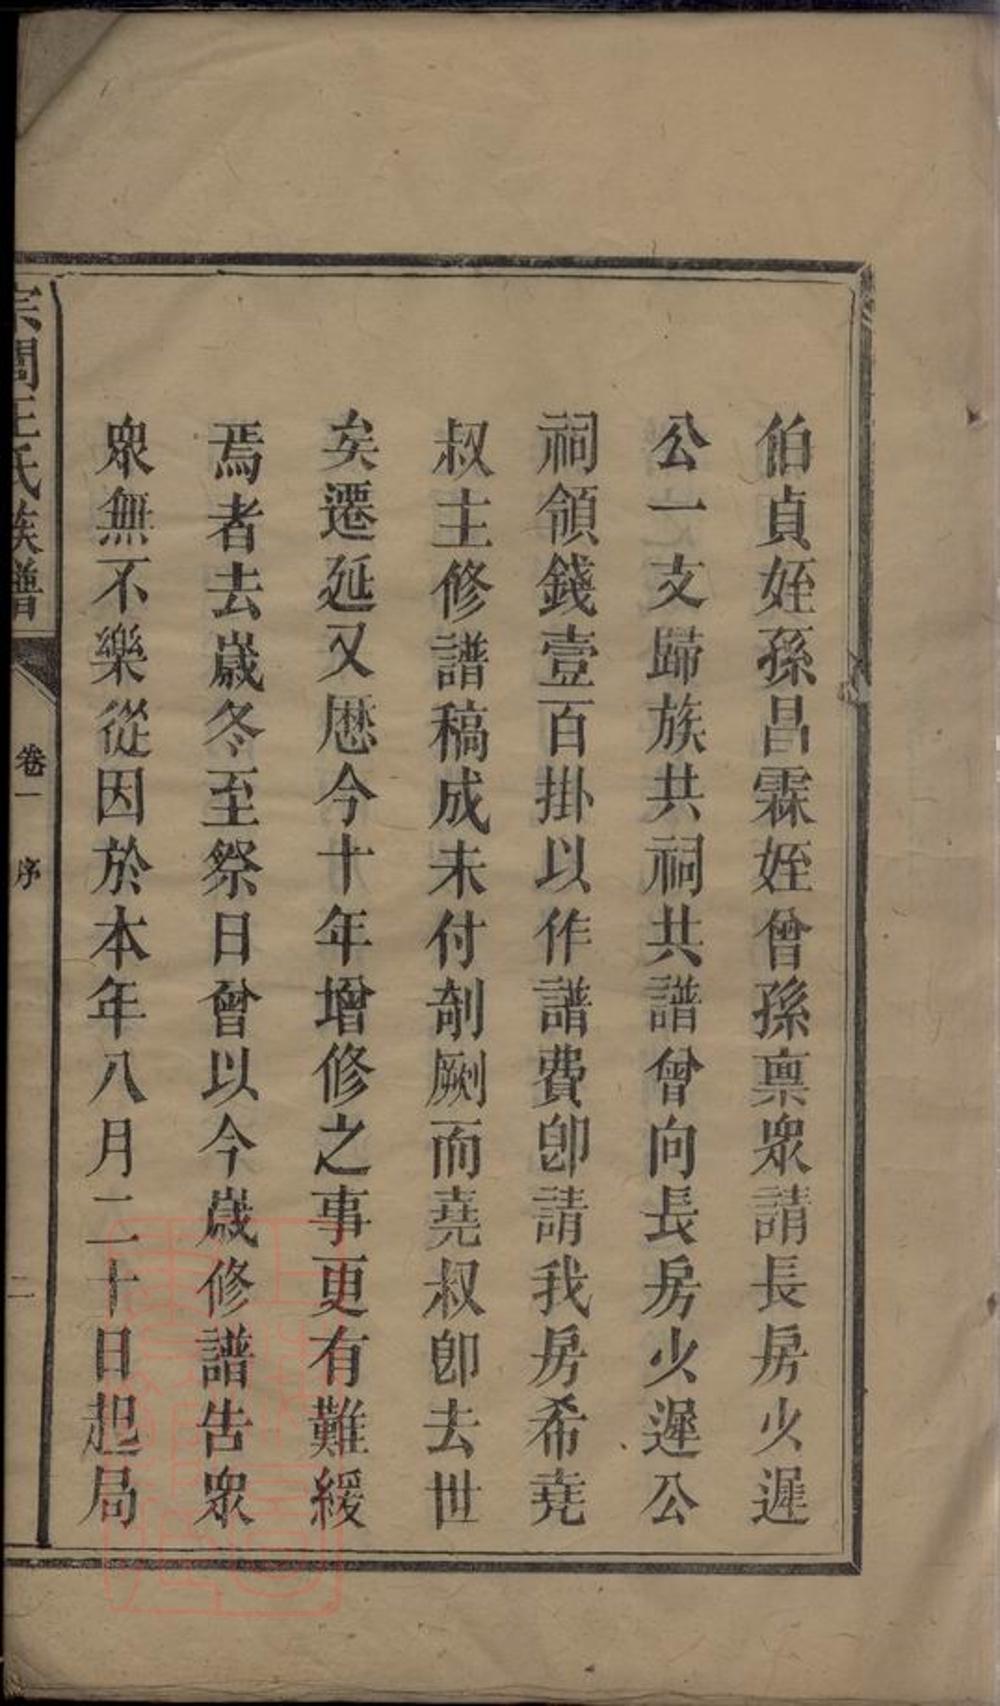 伯貞姪孫昌霖姪曾孫稟眾請長房火遲
公一支歸族共祠共譜曾向長房火遲公
祠領錢壹百掛以作譜費卽請我房希堯
叔主修譜稿成未付剞劂而堯叔卽去世
矣遷延又歷今十年增修之事更有難緩
焉者去歲冬至祭日曾以今歲修譜告眾
眾無不樂從因於本年八月二十日起局
王氏族譜
卷一 序
二